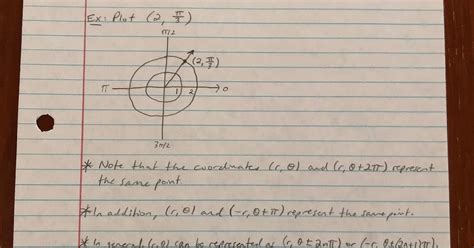 Ex: Plot (2, π/3)
π/2
(2, π/3)
π 1 2 0
3π/2
* Note that the coordinates (r, θ) and (r, θ+2π) represent
the same point.
* In addition, (r, θ) and (-r, θ+π) represent the same point.
* In general (r, θ) can be represented as (r, θ±2nπ) or (-r, θ±(2n+1)π),